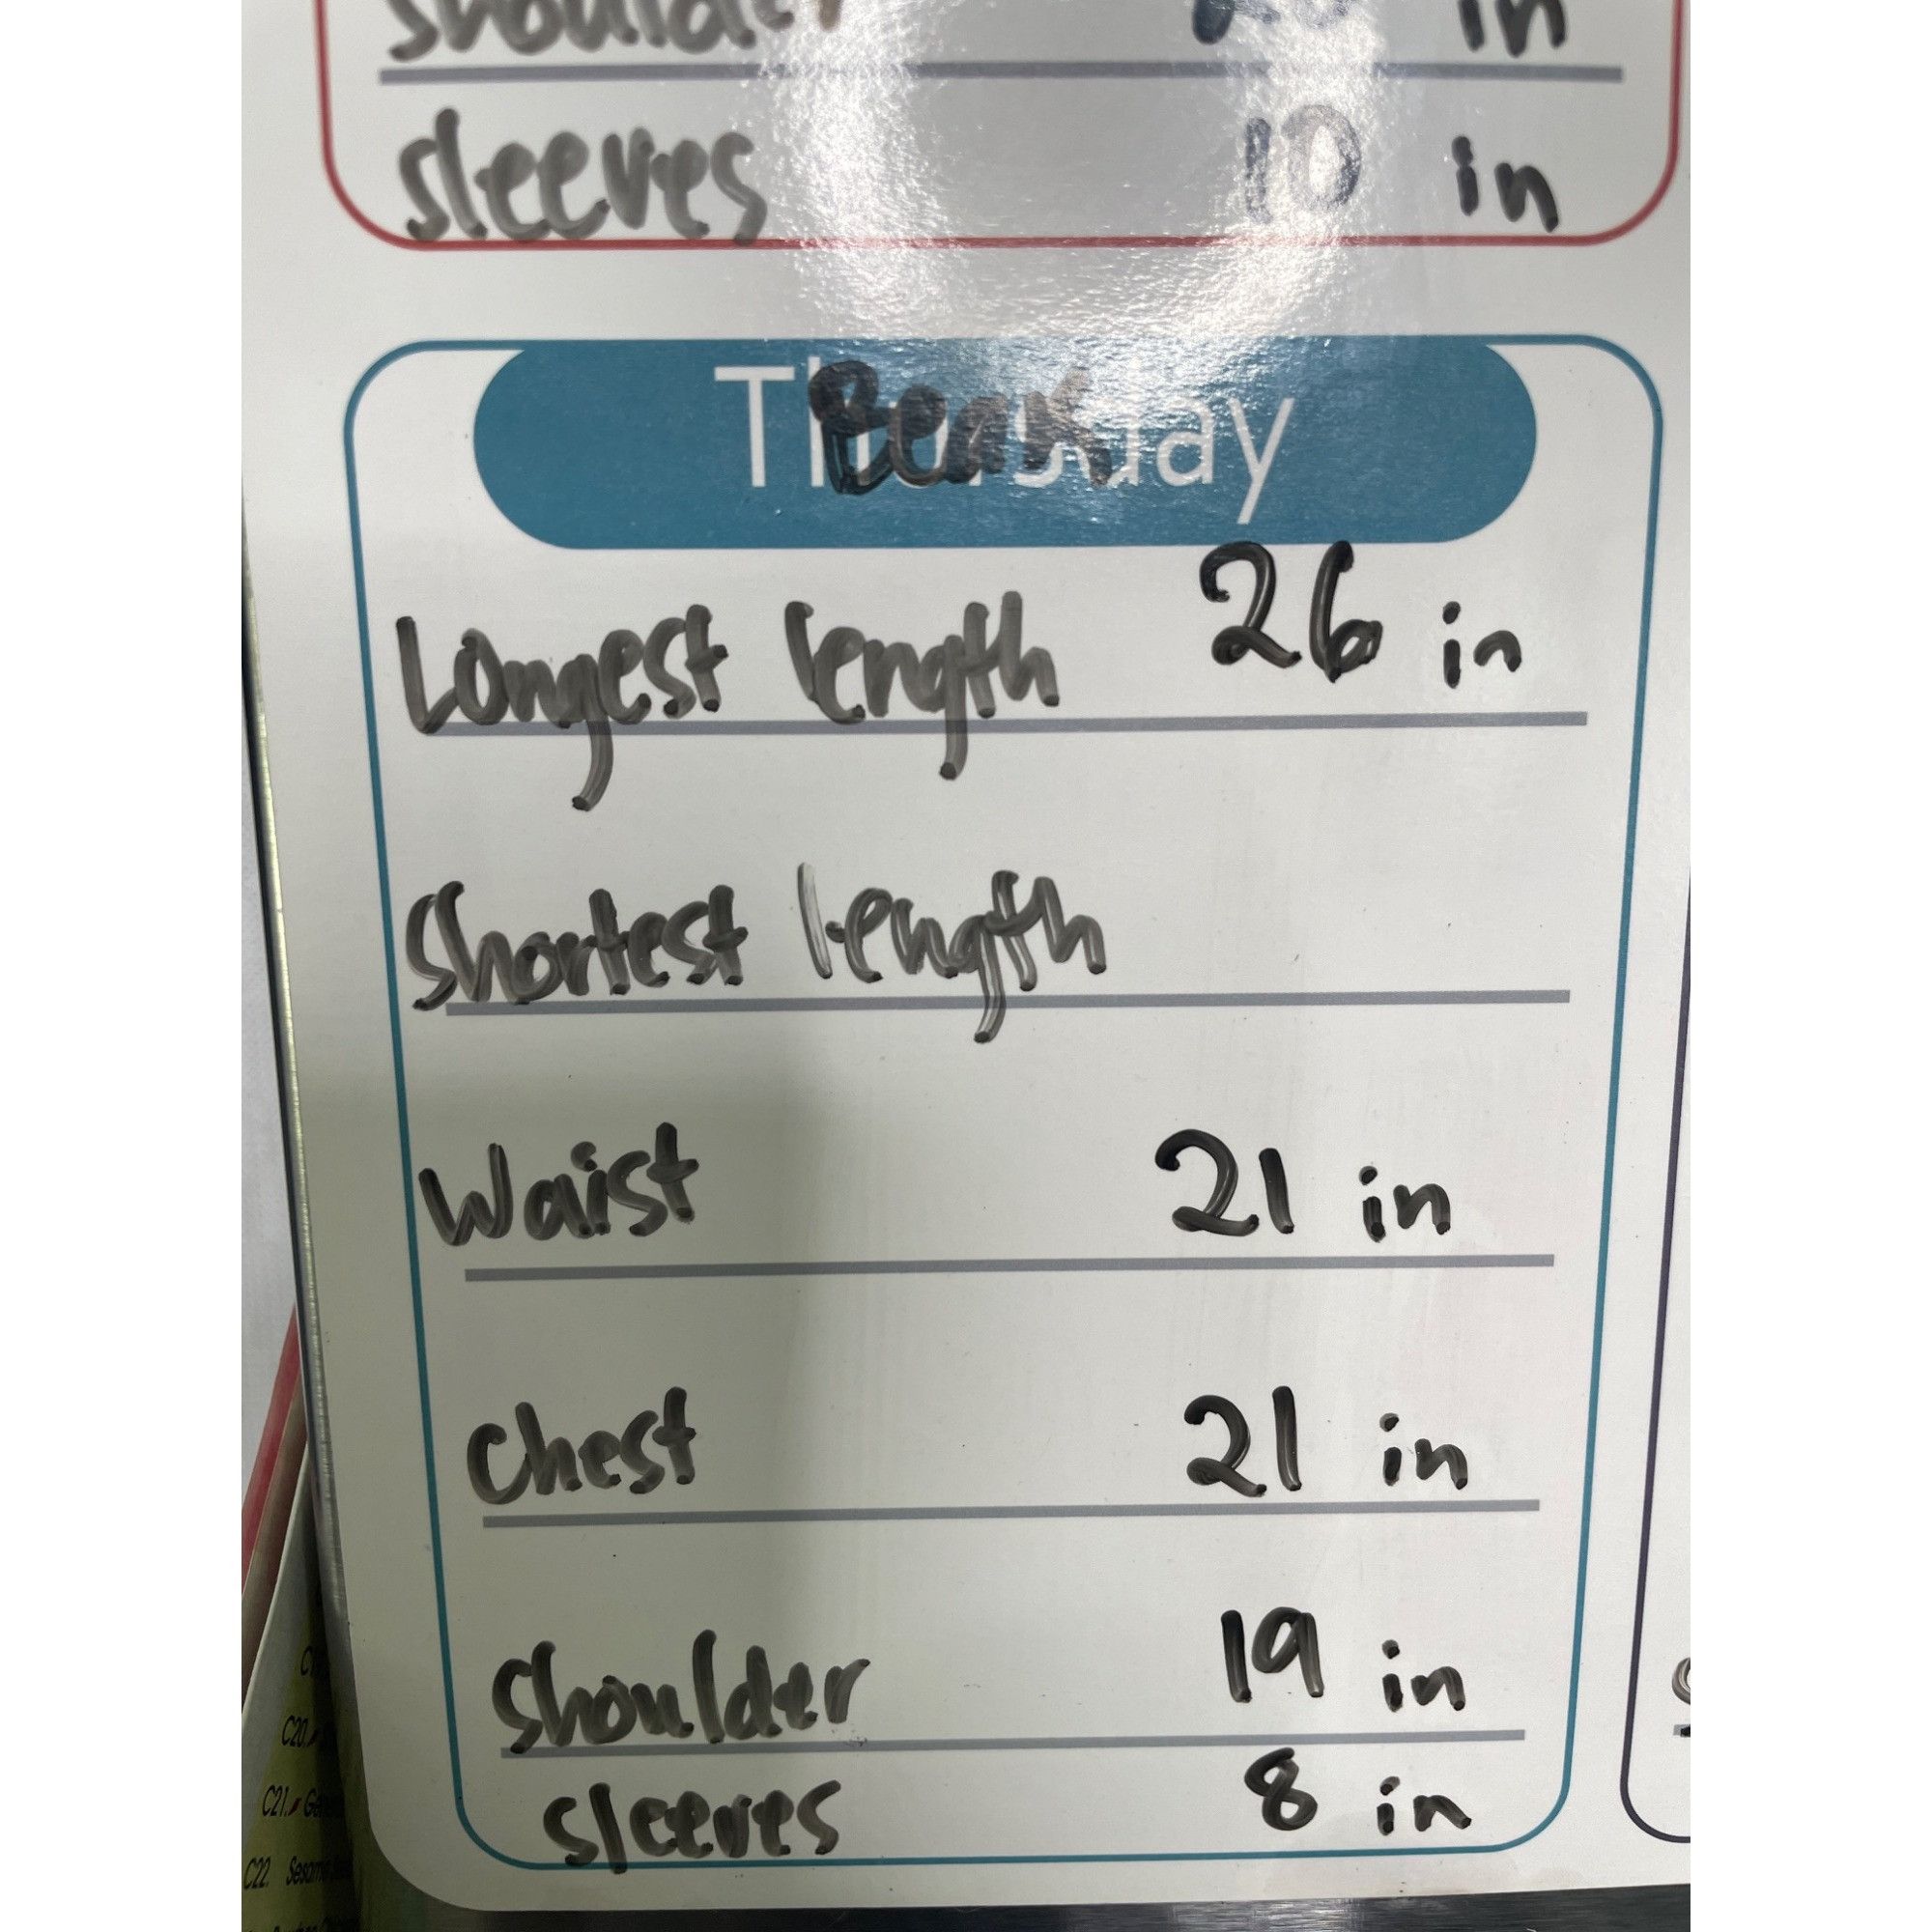 shoulder in
sleeves 10 in
Thursday
Bear
Longest length 26 in
Shortest length
Waist 21 in
Chest 21 in
Shoulder 19 in
sleeves 8 in
C20.
C21.
C22.